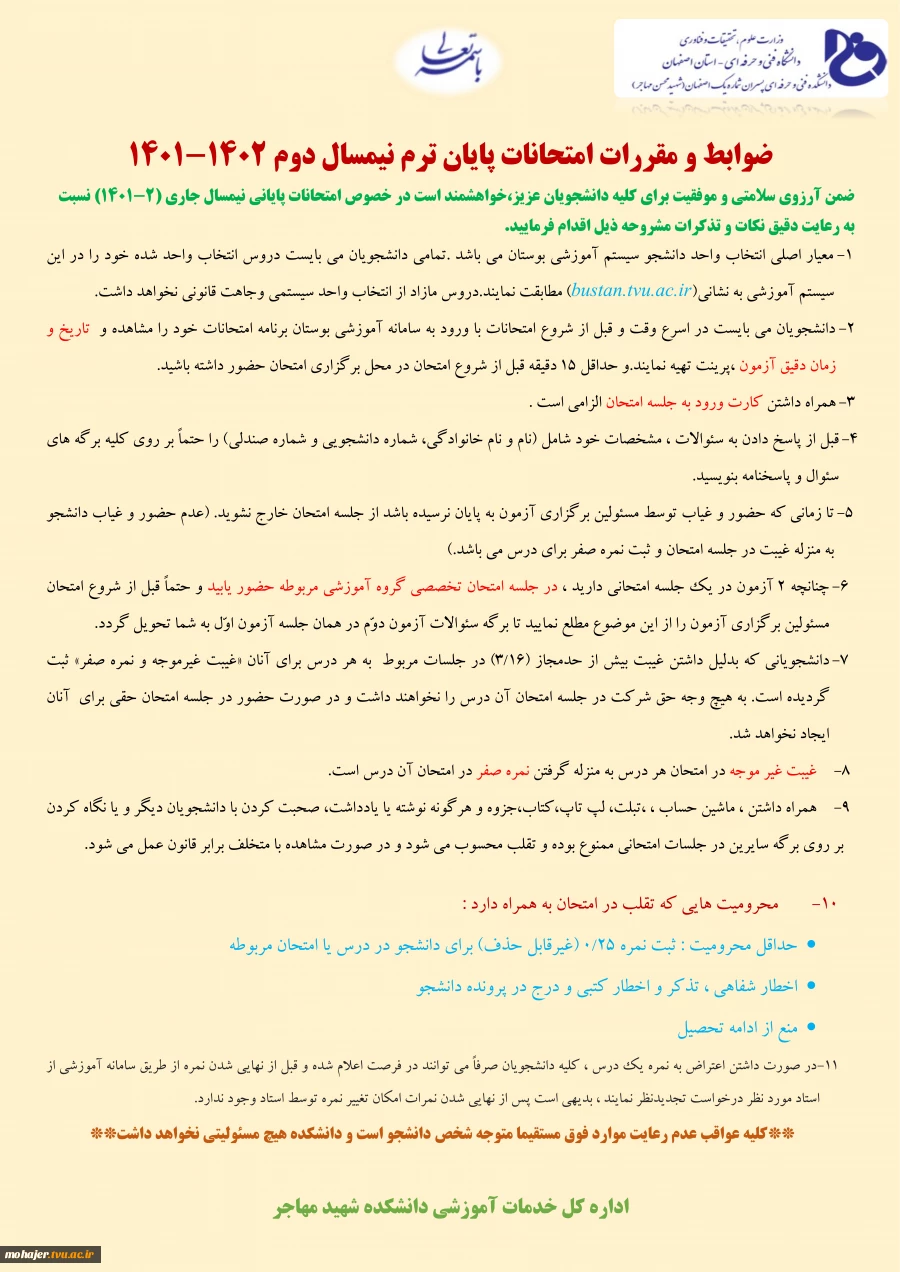 باسمه تعالی
وزارت علوم، تحقیقات و فناوری
دانشگاه فنی و حرفه ای - استان اصفهان
دانشکده فنی و حرفه ای پسران شماره یک اصفهان (شهید محسن مهاجر)
ضوابط و مقررات امتحانات پایان ترم نیمسال دوم ۱۴۰۲-۱۴۰۱
ضمن آرزوی سلامتی و موفقیت برای کلیه دانشجویان عزیز،خواهشمند است در خصوص امتحانات پایانی نیمسال جاری (۲-۱۴۰۱) نسبت
به رعایت دقیق نکات و تذکرات مشروحه ذیل اقدام فرمایید.
۱- معیار اصلی انتخاب واحد دانشجو سیستم آموزشی بوستان می باشد .تمامی دانشجویان می بایست دروس انتخاب واحد شده خود را در این
سیستم آموزشی به نشانی(bustan.tvu.ac.ir) مطابقت نمایند.دروس مازاد از انتخاب واحد سیستمی وجاهت قانونی نخواهد داشت.
۲- دانشجویان می بایست در اسرع وقت و قبل از شروع امتحانات با ورود به سامانه آموزشی بوستان برنامه امتحانات خود را مشاهده و تاریخ و
زمان دقیق آزمون ،پرینت تهیه نمایند.و حداقل ۱۵ دقیقه قبل از شروع امتحان در محل برگزاری امتحان حضور داشته باشید.
۳- همراه داشتن کارت ورود به جلسه امتحان الزامی است .
۴- قبل از پاسخ دادن به سئوالات ، مشخصات خود شامل (نام و نام خانوادگی، شماره دانشجویی و شماره صندلی) را حتماً بر روی کلیه برگه های
سئوال و پاسخنامه بنویسید.
۵- تا زمانی که حضور و غیاب توسط مسئولین برگزاری آزمون به پایان نرسیده باشد از جلسه امتحان خارج نشوید. (عدم حضور و غیاب دانشجو
به منزله غیبت در جلسه امتحان و ثبت نمره صفر برای درس می باشد.)
۶- چنانچه ۲ آزمون در یک جلسه امتحانی دارید ، در جلسه امتحان تخصصی گروه آموزشی مربوطه حضور یابید و حتماً قبل از شروع امتحان
مسئولین برگزاری آزمون را از این موضوع مطلع نمایید تا برگه سئوالات آزمون دوّم در همان جلسه آزمون اوّل به شما تحویل گردد.
۷- دانشجویانی که بدلیل داشتن غیبت بیش از حدمجاز (۳/۱۶) در جلسات مربوط به هر درس برای آنان «غیبت غیرموجه و نمره صفر» ثبت
گردیده است. به هیچ وجه حق شرکت در جلسه امتحان آن درس را نخواهند داشت و در صورت حضور در جلسه امتحان حقی برای آنان
ایجاد نخواهد شد.
۸- غیبت غیر موجه در امتحان هر درس به منزله گرفتن نمره صفر در امتحان آن درس است.
۹- همراه داشتن ، ماشین حساب ، ،تبلت، لپ تاپ،کتاب،جزوه و هرگونه نوشته یا یادداشت، صحبت کردن با دانشجویان دیگر و یا نگاه کردن
بر روی برگه سایرین در جلسات امتحانی ممنوع بوده و تقلب محسوب می شود و در صورت مشاهده با متخلف برابر قانون عمل می شود.
۱۰- محرومیت هایی که تقلب در امتحان به همراه دارد :
● حداقل محرومیت : ثبت نمره ۰/۲۵ (غیرقابل حذف) برای دانشجو در درس یا امتحان مربوطه
● اخطار شفاهی ، تذکر و اخطار کتبی و درج در پرونده دانشجو
● منع از ادامه تحصیل
۱۱-در صورت داشتن اعتراض به نمره یک درس ، کلیه دانشجویان صرفاً می توانند در فرصت اعلام شده و قبل از نهایی شدن نمره از طریق سامانه آموزشی از
استاد مورد نظر درخواست تجدیدنظر نمایند ، بدیهی است پس از نهایی شدن نمرات امکان تغییر نمره توسط استاد وجود ندارد.
**کلیه عواقب عدم رعایت موارد فوق مستقیما متوجه شخص دانشجو است و دانشکده هیچ مسئولیتی نخواهد داشت**
اداره کل خدمات آموزشی دانشکده شهید مهاجر
mohajer.tvu.ac.ir